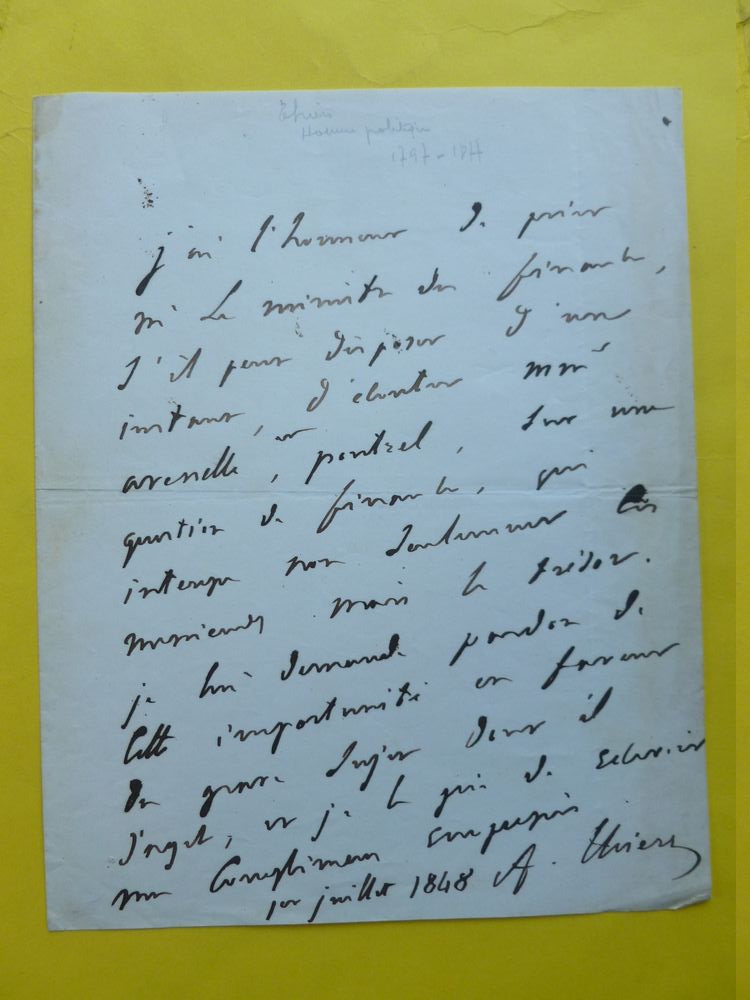 Thiers
Homme politique
1797-1877
j'ai l'honneur de prier
m. le ministre des finances,
s'il peut disposer d'un
instant, d'écouter mrs
et pontzel, sur une
question de finances, qui
interesse non seulement ces
messieurs mais le trésor.
je lui demande pardon de
cette importunité en faveur
du grave sujet dont il
s'agit, et je le prie de recevoir
mes compliments empressés
1er juillet 1848 A. Thiers